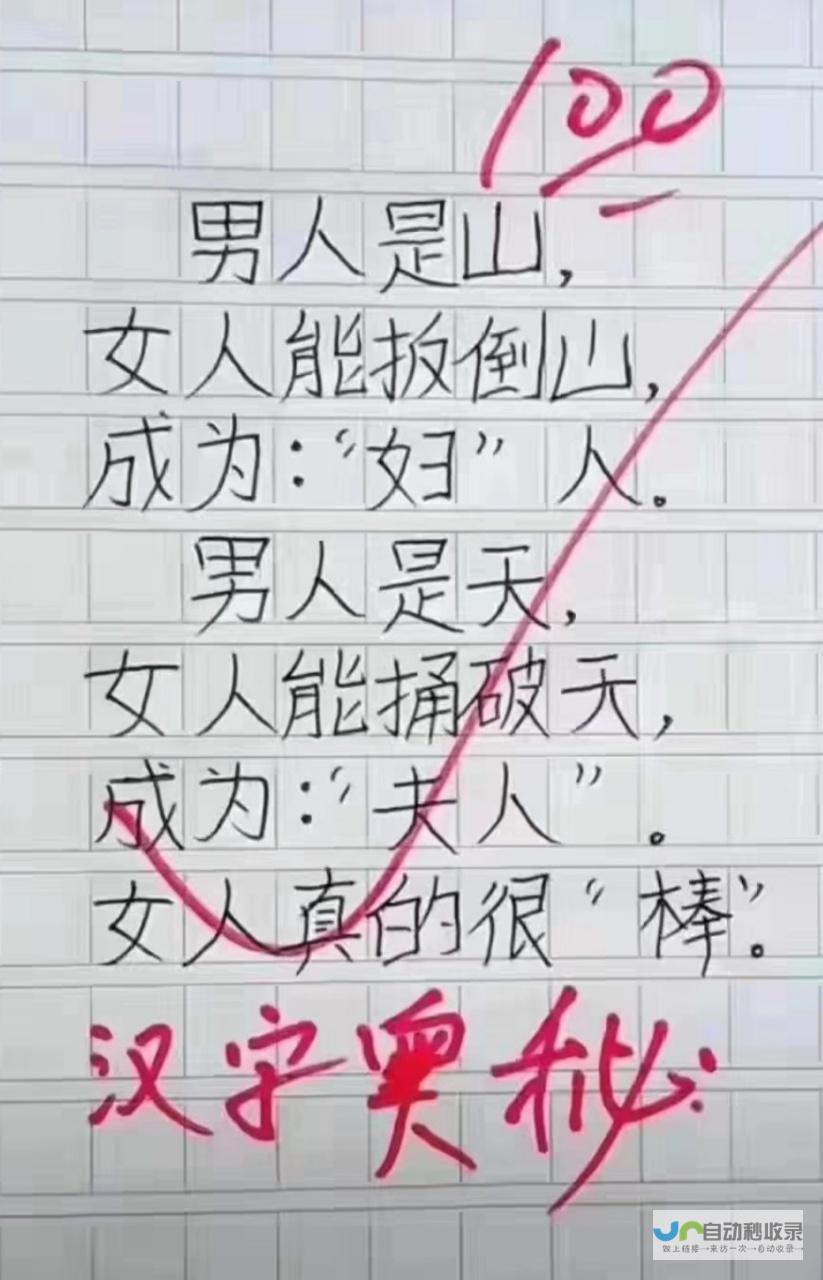 100
男人是山,
女人能扳倒山,
成为:“妇”人。
男人是天,
女人能捅破天,
成为:“夫人”。
女人真的很“棒”。
汉字奥秘
自动秒收录
做上链接→来访一次→自动收录